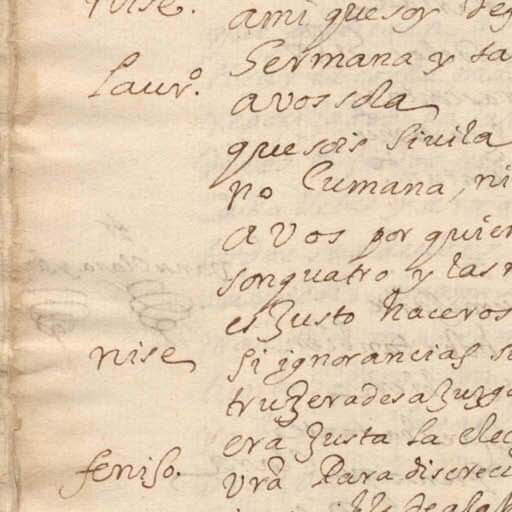 nise. ami que soy deg
Sermana y ta
Laur.º avos sola
que sois Sivila
no Cumana, ni
avos por quien
son quatro y las
es Justo haceros
nise si ignorancias
truxerades a Juzga
era Justa la elec
feniso. vrã Para discreci